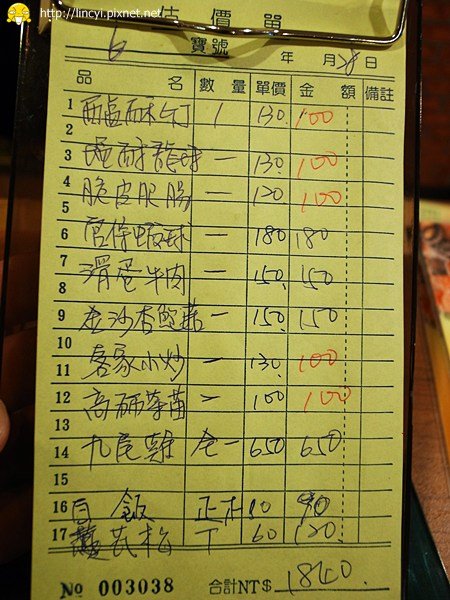 http://lincyi.pixnet.net/
估價單
6 寶號 年 月 28 日
品名 數量 單價 金額 備註
1 1 130 100
2
3 一 130 100
4 脆皮肥腸 一 120 100
5
6 蝦球 一 180 180
7 滑蛋牛肉 一 150 150
8
9 金沙杏鮑菇 一 150 150
10
11 客家小炒 一 130 100
12 一 100 100
13
14 九尾雞 全一 650 650
15
16 白飯 正 10 90
17 花松 T 60 120
No 003038 合計NT$ 1840